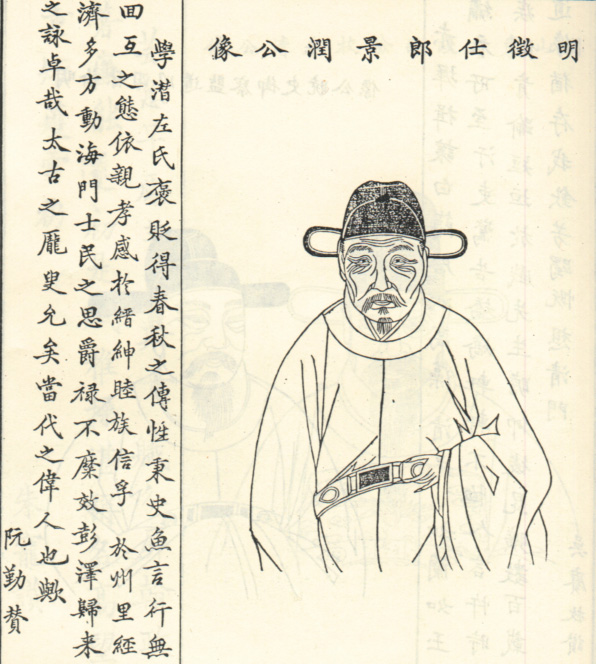 明徵仕郎景潤公像
學潛左氏褒貶得春秋之傳性秉史魚言行無
回互之態依親孝感於縉紳睦族信孚於州里經
濟多方動海門士民之思爵祿不縻效彭澤歸来
之詠卓哉太古之龎叟允矣當代之偉人也歟
阮勤賛